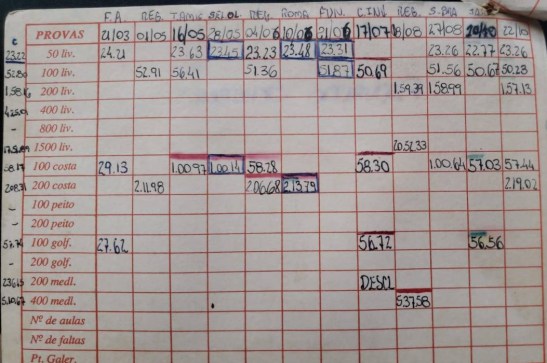 F.A. REG. TAMIS DEF. ROMA FUN. C.INV REG. S.BRA
PROVAS 21/03 01/05 16/05 28/05 04/06 10/06 21/06 17/07 18/08 27/08 22/10
23.22 50 liv. 24.21 23.63 23.45 23.23 23.48 23.31 23.26 22.77 23.26
100 liv. 52.91 56.41 51.36 51.87 50.69 51.56 50.67 50.28
200 liv. 1.59.39 1.58.99 1.57.13
400 liv.
- 800 liv.
1500 liv. 20.52.33
100 costa 29.13 1.00.97 1.00.14 58.28 58.30 1.00.64 57.03 57.44
200 costa 2.11.98 2.06.68 2.13.79 2.19.02
- 100 peito
- 200 peito
100 golf. 27.62 56.72 56.56
- 200 golf.
200 medl. DESCL
400 medl. 5.37.58
Nº de aulas
Nº de faltas
Pt. Galer.